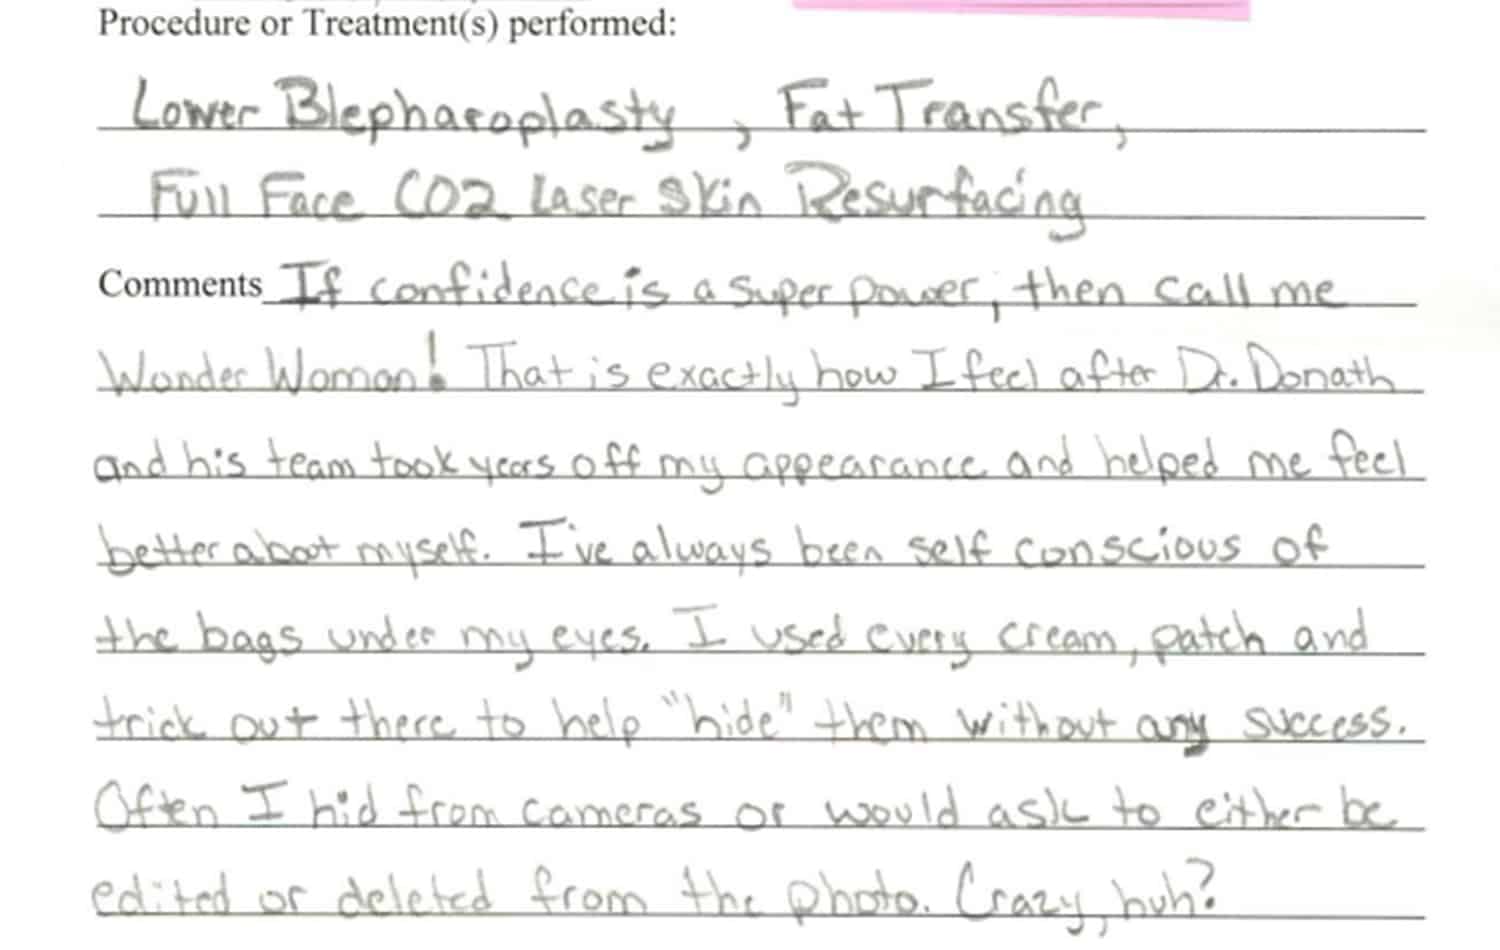 Procedure or Treatment(s) performed:
Lower Blepharoplasty, Fat Transfer,
Full Face CO2 Laser Skin Resurfacing
Comments If confidence is a super power, then call me
Wonder Woman! That is exactly how I feel after Dr. Donath
and his team took years off my appearance and helped me feel
better about myself. I've always been self conscious of
the bags under my eyes. I used every cream, patch and
trick out there to help "hide" them without any success.
Often I hid from cameras or would ask to either be
edited or deleted from the photo. Crazy, huh?